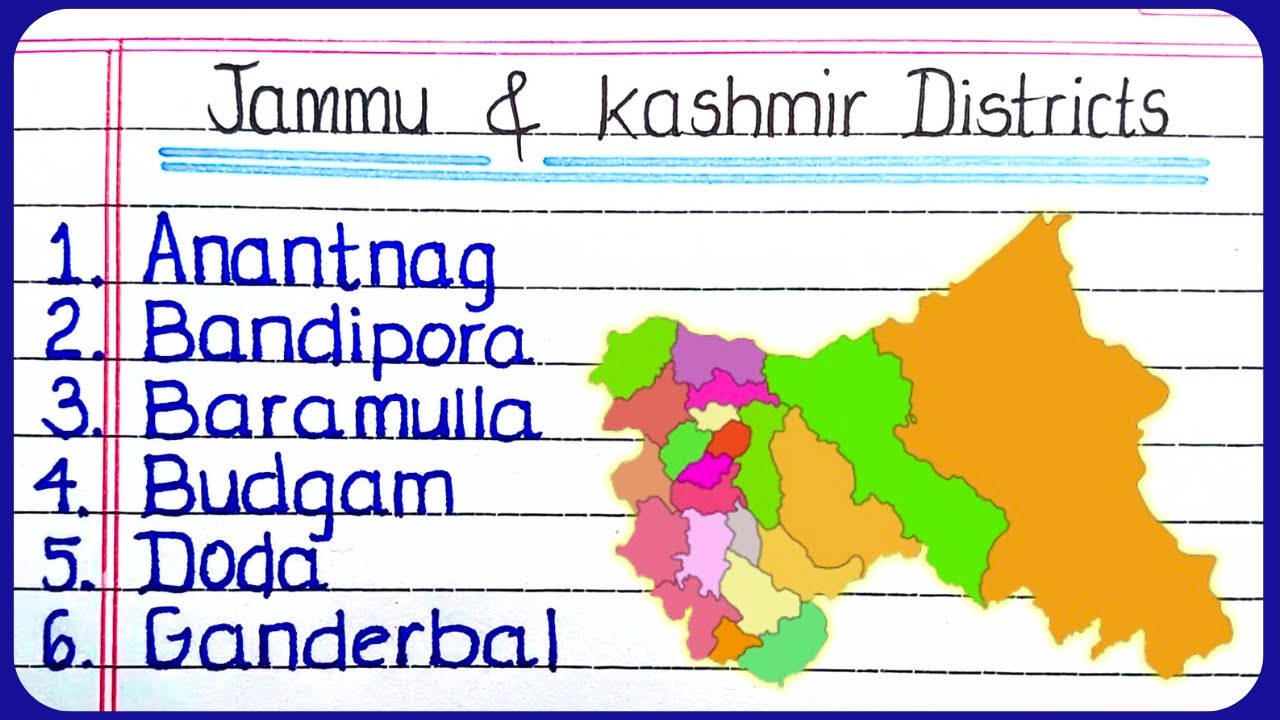 Jammu & Kashmir Districts
1. Anantnag
2. Bandipora
3. Baramulla
4. Budgam
5. Doda
6. Ganderbal